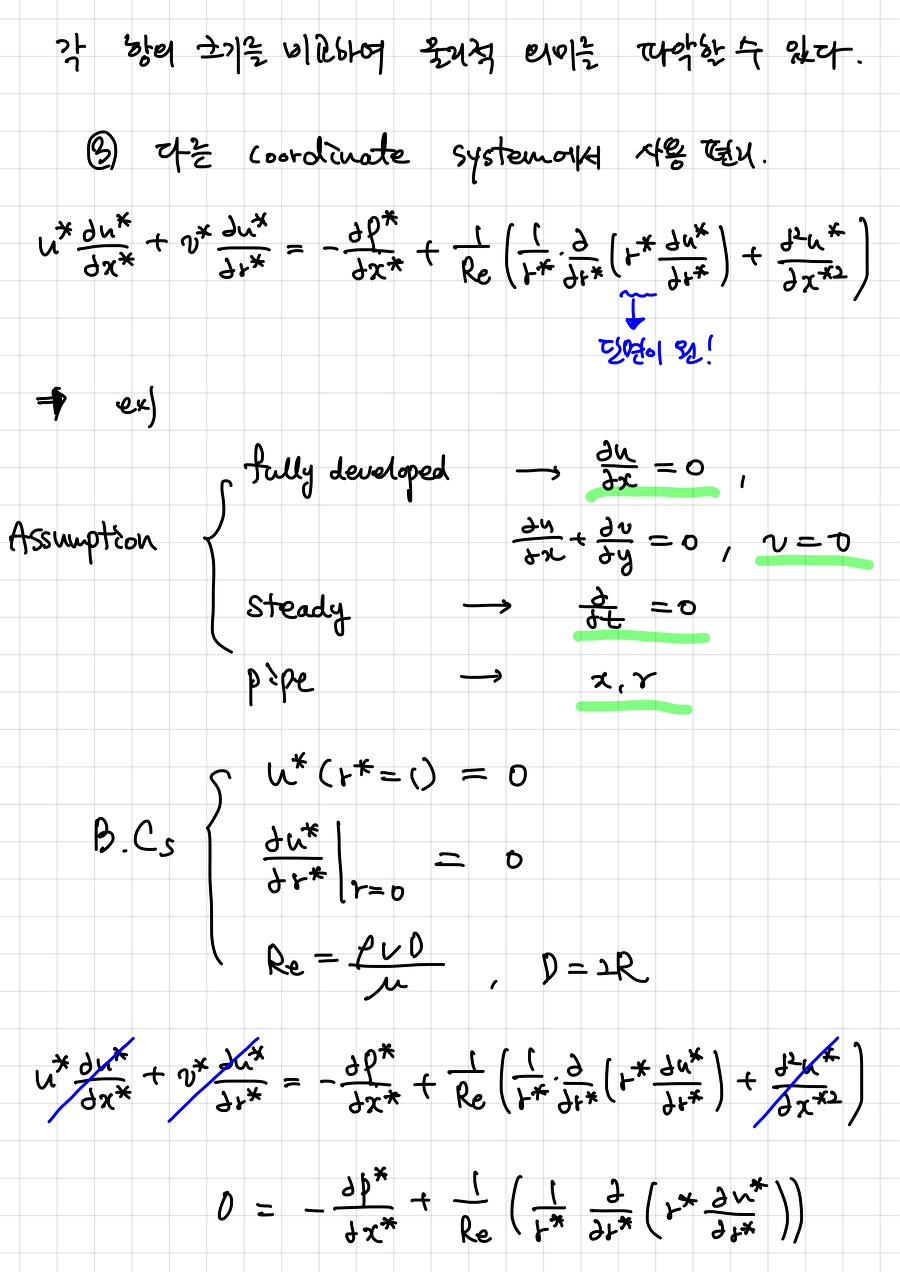 각 항의 크기를 비교하여 물리적 의미를 파악할 수 있다.
③ 다른 coordinate system에서 사용 편리.
u* ∂u*/∂x* + v* ∂u*/∂r* = - ∂P*/∂x* + 1/Re (1/r* · ∂/∂r* (r* ∂u*/∂r*) + ∂²u*/∂x*²)
↓
단면이 원!
⇒ ex)
fully developed → ∂u/∂x = 0 ,
Assumption { ∂u/∂x + ∂v/∂y = 0 , v = 0
steady → ∂/∂t = 0
pipe → x, r
u* (r* = 1) = 0
B.Cs { ∂u*/∂r* |r=0 = 0
Re = ρVD/μ , D = 2R
u* ∂u*/∂x* + v* ∂u*/∂r* = - ∂P*/∂x* + 1/Re (1/r* · ∂/∂r* (r* ∂u*/∂r*) + ∂²u*/∂x*²)
0 = - ∂p*/∂x* + 1/Re (1/r* ∂/∂r* (r* ∂u*/∂r*))